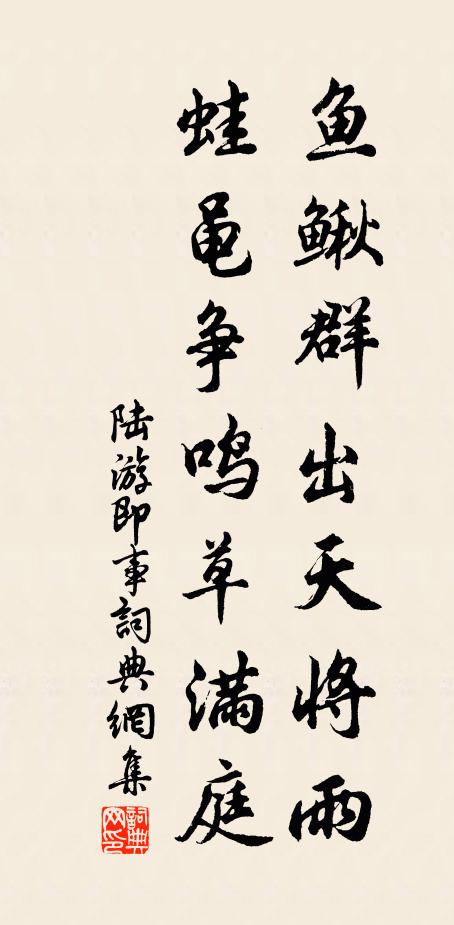 鱼鳅群出天将雨
蛙黾争鸣草满庭
陆游即事詞典網集
詞典网印